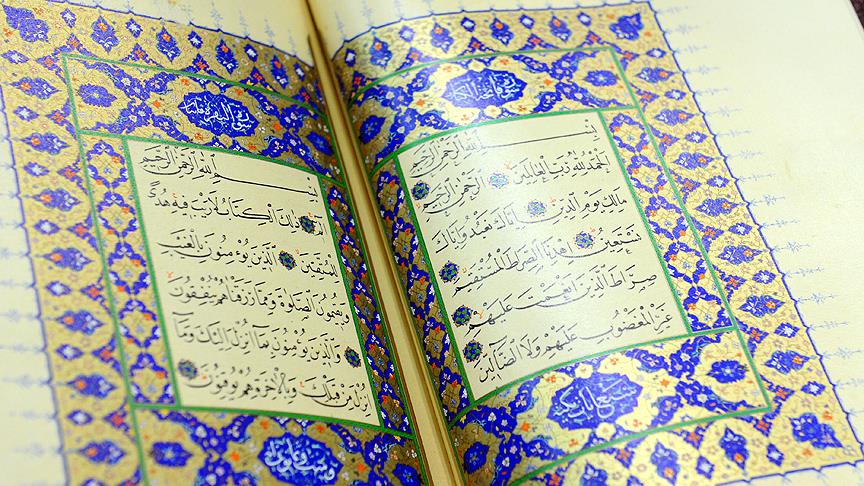 سُورَةُ فَاتِحَةِ الْكِتَابِ
بِسْمِ اللّٰهِ الرَّحْمٰنِ الرَّحِيمِ
اَلْحَمْدُ لِلّٰهِ رَبِّ الْعَالَمِينَ الرَّحْمٰنِ الرَّحِيمِ
مَالِكِ يَوْمِ الدِّينِ اِيَّاكَ نَعْبُدُ وَاِيَّاكَ
نَسْتَعِينُ اِهْدِنَا الصِّرَاطَ الْمُسْتَقِيمَ
صِرَاطَ الَّذِينَ اَنْعَمْتَ عَلَيْهِمْ
غَيْرِ الْمَغْضُوبِ عَلَيْهِمْ وَلَا الضَّالِّينَ
سُورَةُ الْبَقَرَةِ
بِسْمِ اللّٰهِ الرَّحْمٰنِ الرَّحِيمِ
الٓمٓ ذٰلِكَ الْكِتَابُ لَا رَيْبَ فِيهِ هُدًى
لِلْمُتَّقِينَ الَّذِينَ يُؤْمِنُونَ بِالْغَيْبِ
وَيُقِيمُونَ الصَّلٰوةَ وَمِمَّا رَزَقْنَاهُمْ يُنْفِقُونَ
وَالَّذِينَ يُؤْمِنُونَ بِمَا اُنْزِلَ اِلَيْكَ وَمَا
اُنْزِلَ مِنْ قَبْلِكَ وَبِالْاٰخِرَةِ هُمْ يُوقِنُونَ